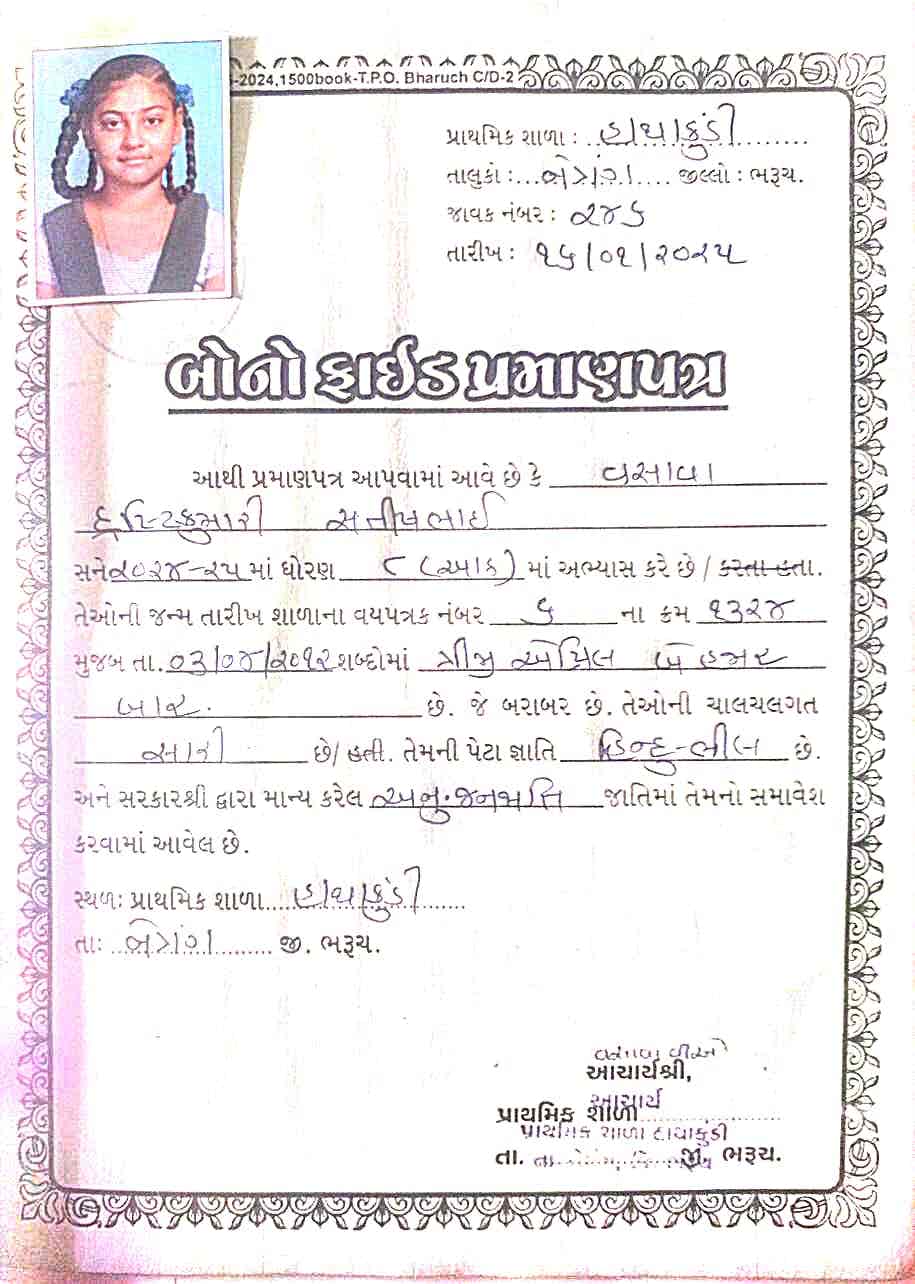 -2024,1500book-T.P.O. Bharuch C/D-2
પ્રાથમિક શાળા : હાથાકુંડી
તાલુકો: નેત્રંગ જીલ્લો : ભરૂચ.
જાવક નંબર : ૨૪૬
તારીખ : ૧૬/૦૧/૨૦૨૫
બોનો ફાઈડ પ્રમાણપત્ર
આથી પ્રમાણપત્ર આપવામાં આવે છે કે વસાવા
દ્રષ્ટિકુમારી સતીષભાઈ
સને ૨૦૨૪-૨૫ માં ધોરણ ૮ (આઠ) માં અભ્યાસ કરે છે / કરતા હતા.
તેઓની જન્મ તારીખ શાળાના વયપત્રક નંબર ૬ ના ક્રમ ૧૩૨૪
મુજબ તા. ૦૩/૦૪/૨૦૧૨ શબ્દોમાં ત્રીજી એપ્રિલ બે હજાર
બાર. છે. જે બરાબર છે. તેઓની ચાલચલગત
સારી છે/ હતી. તેમની પેટા જ્ઞાતિ હિન્દુ-ભીલ છે.
અને સરકારશ્રી દ્વારા માન્ય કરેલ અનુ.જનજાતિ જાતિમાં તેમનો સમાવેશ
કરવામાં આવેલ છે.
સ્થળઃ પ્રાથમિક શાળા હાથાકુંડી
તાઃ નેત્રંગ જી. ભરૂચ.
આચાર્યશ્રી,
આચાર્ય
પ્રાથમિક શાળા
પ્રાથમિક શાળા હાથાકુંડી
તા. જી. ભરૂચ.